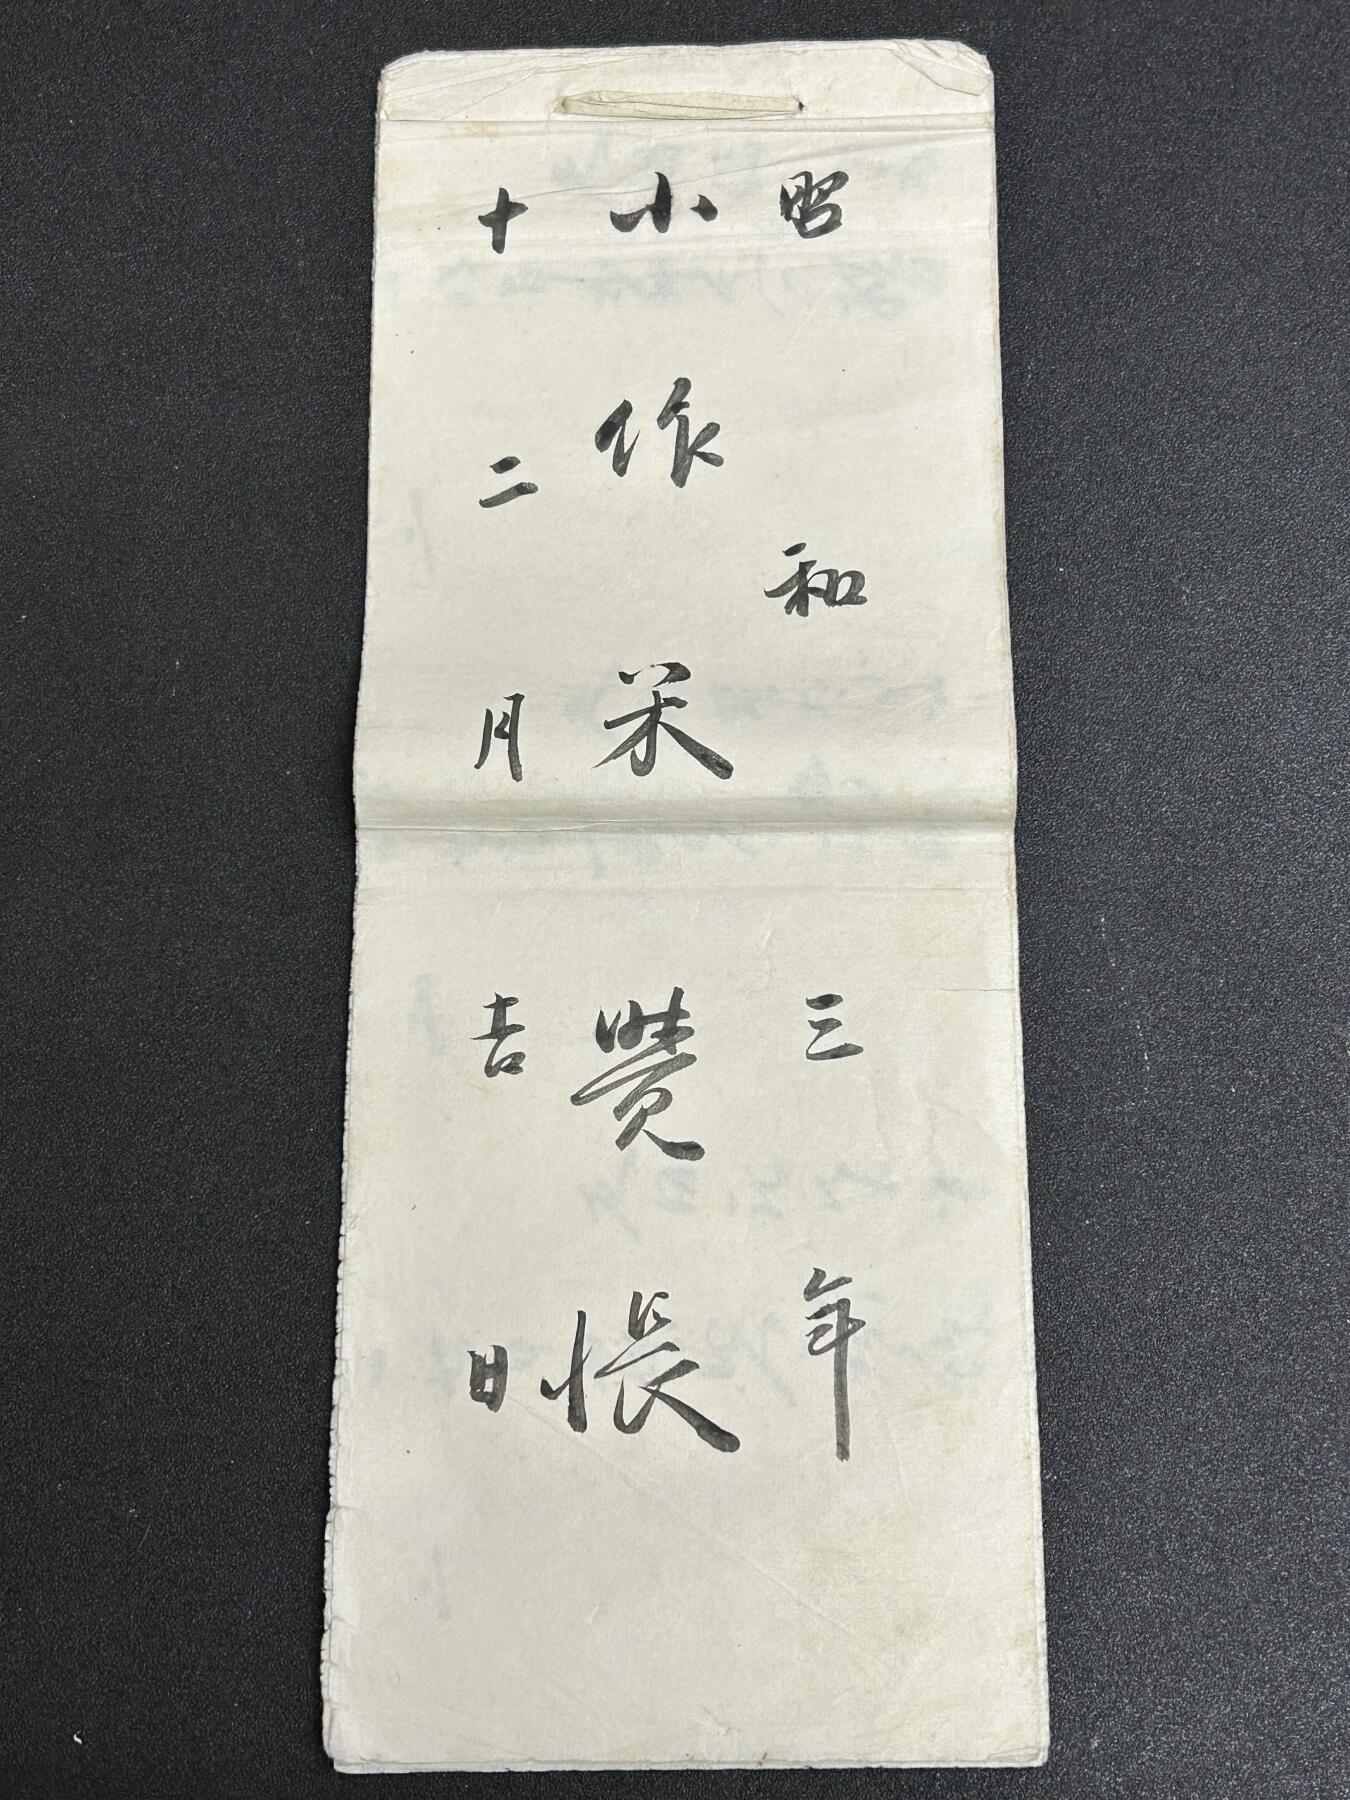 昭和三年
小作米覺帳
十二月吉日